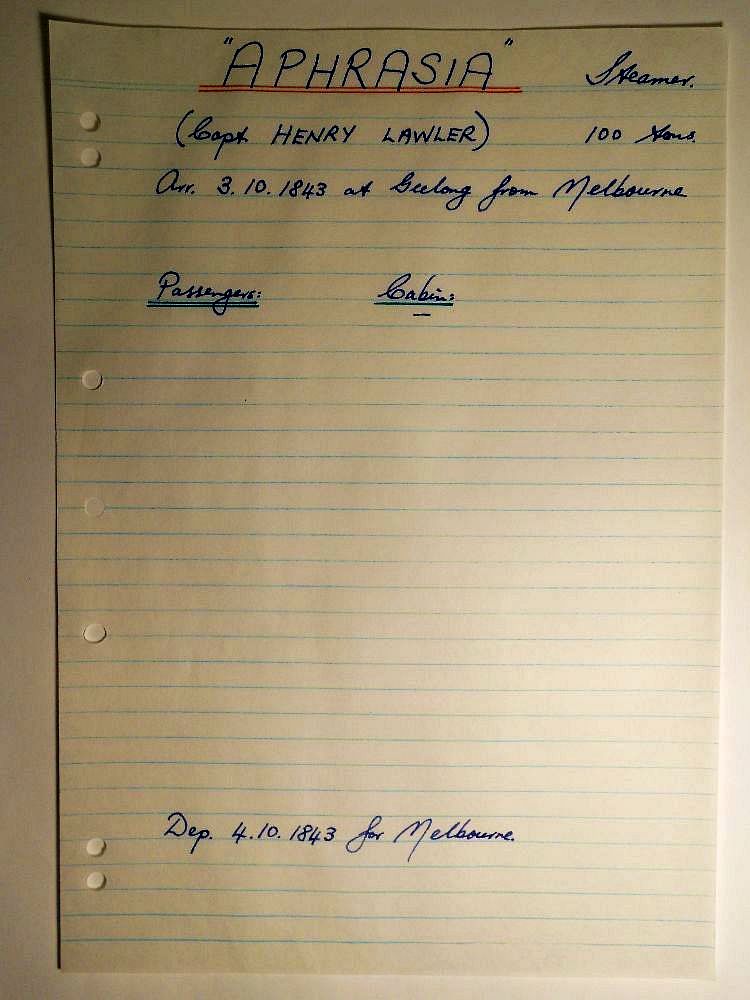 "APHRASIA" Steamer.
(Capt HENRY LAWLER) 100 tons.
Arr. 3.10.1843 at Geelong from Melbourne
Passengers: Cabin:
Dep. 4.10.1843 for Melbourne.